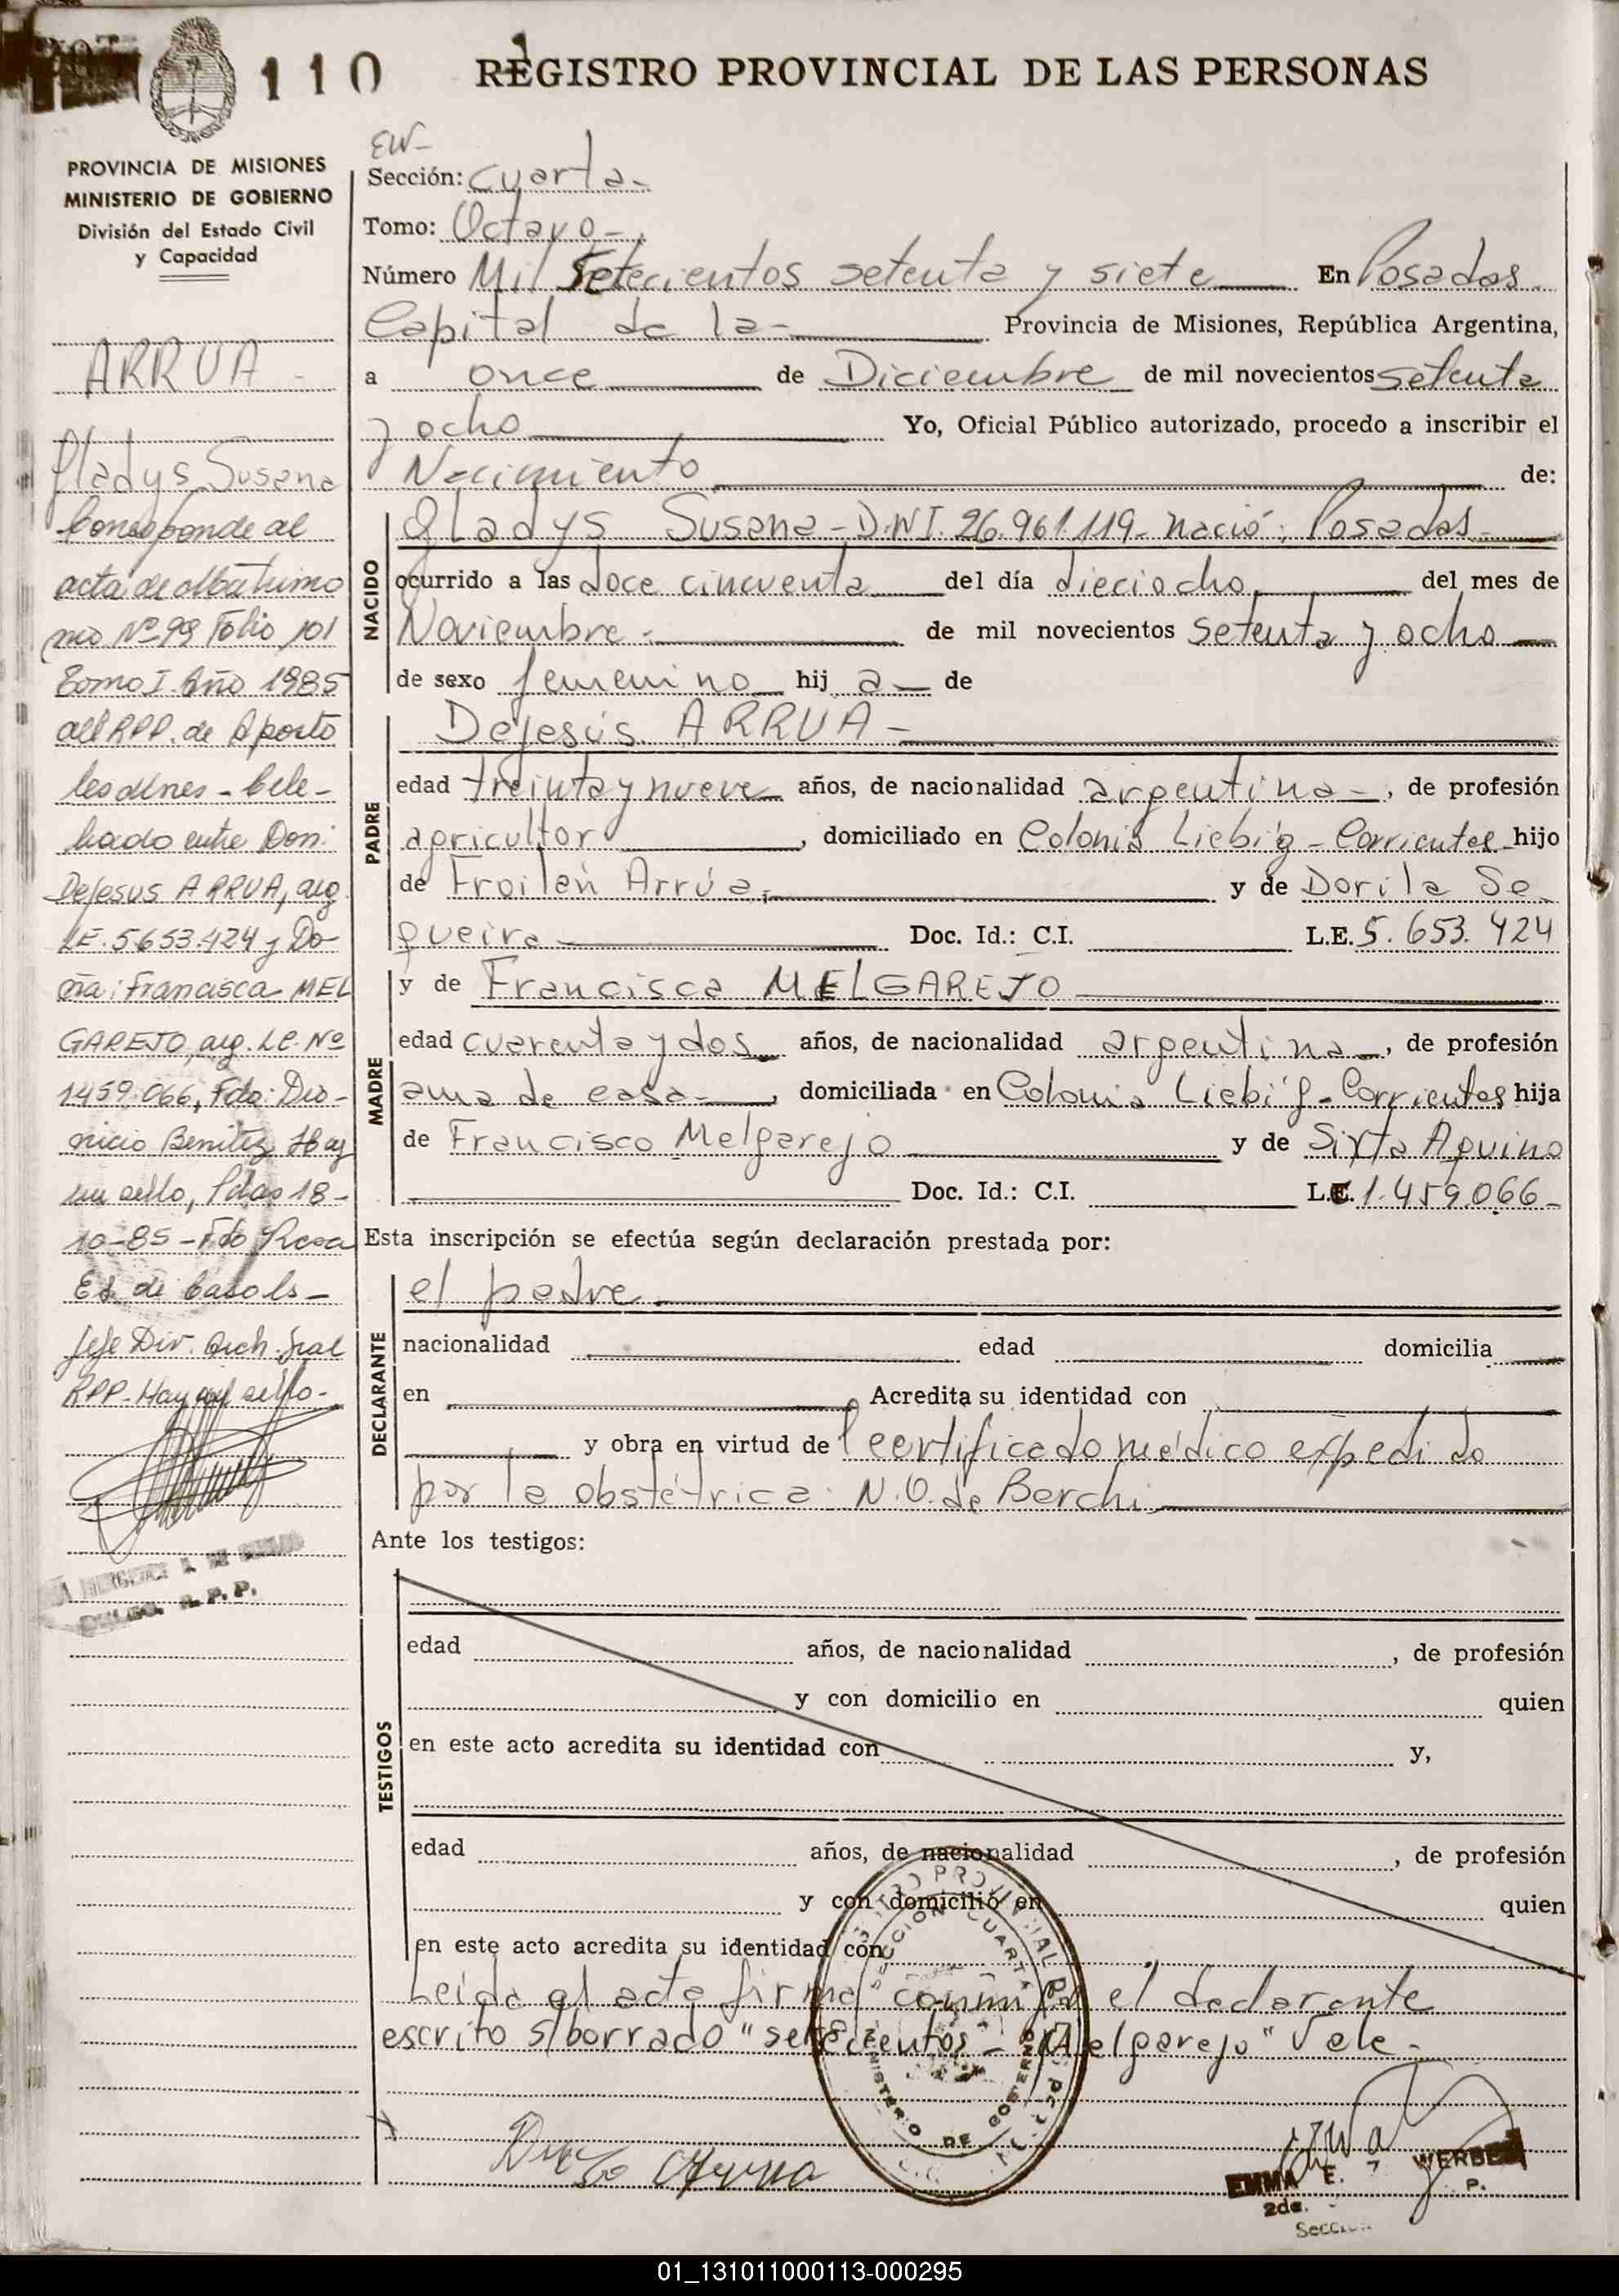 110 REGISTRO PROVINCIAL DE LAS PERSONAS
PROVINCIA DE MISIONES
MINISTERIO DE GOBIERNO
División del Estado Civil
y Capacidad
ARRUA -
Gladys Susana
Corresponde al
acta de Matrimo
nio Nº 99 Folio 101
Tomo I Año 1985
del RPP. de Aposto
les Mnes - Cele-
brado entre Don:
Dejesus ARRUA, arg
LE. 5.653.424 y Do-
ña: Francisca MEL
GAREJO, arg. LC. Nº
1459.066, Fdo: Dio-
nicio Benitez Hay
un sello, Pdas 18-
10-85 - Fdo Rosa
Es. de Casols -
Jefe Div. Arch. Gral
RPP - Hay un sello -
R. P. P.
EW-
Sección: Cuarta -
Tomo: Octavo -
Número Mil Setecientos setenta y siete En Posadas
Capital de la - Provincia de Misiones, República Argentina,
a once de Diciembre de mil novecientos setenta
y ocho Yo, Oficial Público autorizado, procedo a inscribir el
Nacimiento de:
NACIDO
Gladys Susana - D.N.I. 26.961.119 - nació: Posadas -
ocurrido a las doce cincuenta del día dieciocho del mes de
Noviembre - de mil novecientos setenta y ocho
de sexo femenino hij a de
PADRE
Dejesús ARRUA -
edad treinta y nueve años, de nacionalidad argentina -, de profesión
agricultor, domiciliado en Colonia Liebig - Corrientes hijo
de Froilán Arrúa; y de Dorila Se
queira Doc. Id.: C.I. L.E. 5.653.424
MADRE
y de Francisca MELGAREJO
edad cuarenta y dos años, de nacionalidad argentina -, de profesión
ama de casa -, domiciliada en Colonia Liebig - Corrientes hija
de Francisco Melgarejo y de Sixta Aquino
Doc. Id.: C.I. L.C. 1.459.066 -
Esta inscripción se efectúa según declaración prestada por:
DECLARANTE
el padre
nacionalidad edad domicilia
en Acredita su identidad con
y obra en virtud del certificado médico expedido
por la obstétrica: N.O. de Berchi
Ante los testigos:
TESTIGOS
edad años, de nacionalidad, de profesión
y con domicilio en quien
en este acto acredita su identidad con y,
edad años, de nacionalidad, de profesión
y con domicilio en quien
en este acto acredita su identidad con
Leída el acta firma conmigo el declarante
escrito s/borrado "setecientos - Melgarejo" Vale -
REGISTRO PROVINCIAL DE LAS PERSONAS
SECCION CUARTA
MINISTERIO DE GOBIERNO
EMMA E. WERBE
2da. P.
Sección
01_131011000113-000295